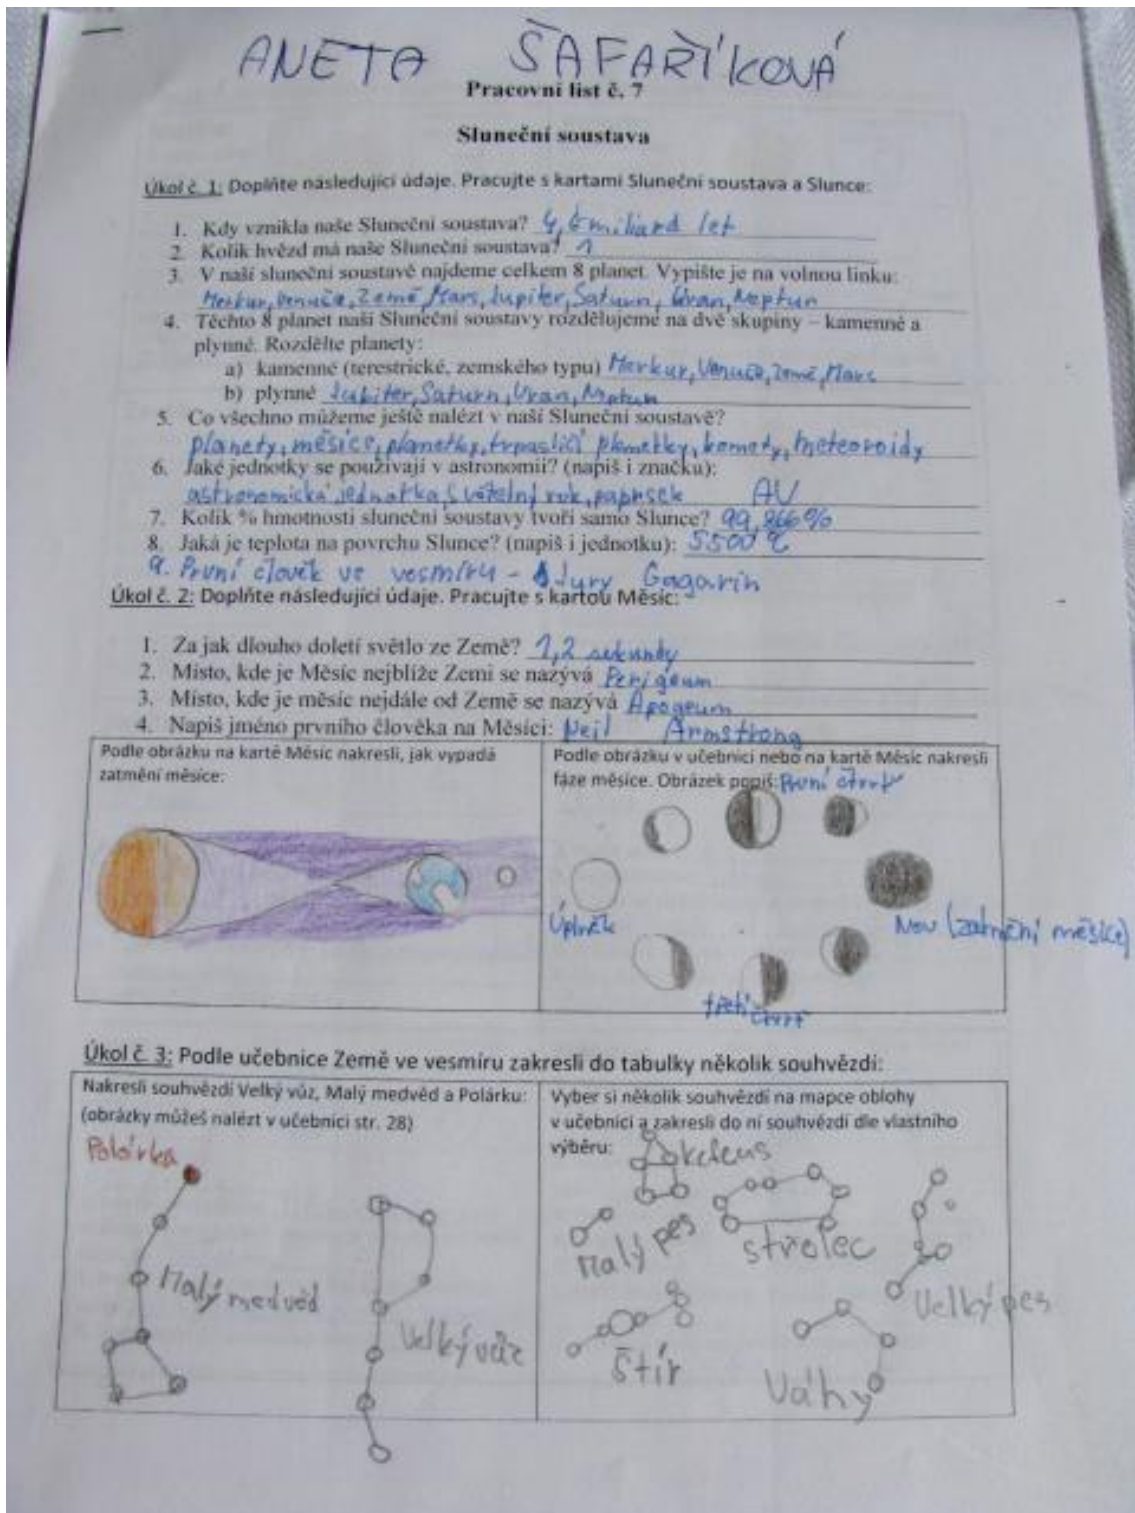 ANETA ŠAFAŘÍKOVÁ
Pracovní list č. 7
Sluneční soustava
Úkol č. 1: Doplňte následující údaje. Pracujte s kartami Sluneční soustava a Slunce:
1. Kdy vznikla naše Sluneční soustava? 4,6 miliard let
2. Kolik hvězd má naše Sluneční soustava? 1
3. V naší sluneční soustavě najdeme celkem 8 planet. Vypište je na volnou linku:
Merkur, Venuše, Země, Mars, Jupiter, Saturn, Uran, Neptun
4. Těchto 8 planet naší Sluneční soustavy rozdělujeme na dvě skupiny – kamenné a
plynné. Rozdělte planety:
a) kamenné (terestrické, zemského typu) Merkur, Venuše, Země, Mars
b) plynné Jupiter, Saturn, Uran, Neptun
5. Co všechno můžeme ještě nalézt v naší Sluneční soustavě?
planety, měsíce, planetky, trpasličí planetky, komety, meteoroidy
6. Jaké jednotky se používají v astronomii? (napiš i značku):
astronomická jednotka, světelný rok, paprsek AU
7. Kolik % hmotnosti sluneční soustavy tvoří samo Slunce? 99,866%
8. Jaká je teplota na povrchu Slunce? (napiš i jednotku): 5500 °C
9. První člověk ve vesmíru - Jury Gagarin
Úkol č. 2: Doplňte následující údaje. Pracujte s kartou Měsíc:
1. Za jak dlouho doletí světlo ze Země? 1,2 sekundy
2. Místo, kde je Měsíc nejblíže Zemi se nazývá Perigeum
3. Místo, kde je měsíc nejdále od Země se nazývá Apogeum
4. Napiš jméno prvního člověka na Měsíci: Neil Armstrong
Podle obrázku na kartě Měsíc nakresli, jak vypadá
zatmění měsíce:
Podle obrázku v učebnici nebo na kartě Měsíc nakresli
fáze měsíce. Obrázek popiš: První čtvrť
Úplněk
Nov (zatmění měsíce)
třetí čtvrť
Úkol č. 3: Podle učebnice Země ve vesmíru zakresli do tabulky několik souhvězdí:
Nakresli souhvězdí Velký vůz, Malý medvěd a Polárku:
(obrázky můžeš nalézt v učebnici str. 28)
Polárka
Malý medvěd
Velký vůz
Vyber si několik souhvězdí na mapce oblohy
v učebnici a zakresli do ní souhvězdí dle vlastního
výběru:
kefeus
Malý pes
střelec
Velký pes
Štír
Váhy